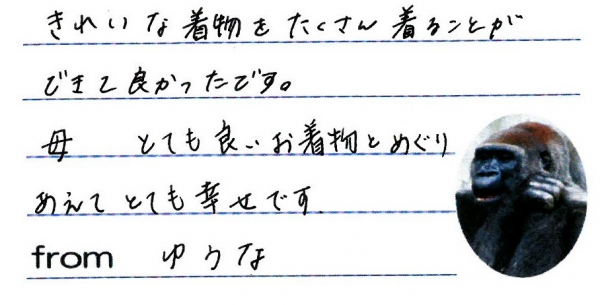 きれいな着物をたくさん着ることが
できて良かったです。
母　とても良いお着物とめぐり
あえてとても幸せです.
from ゆうな